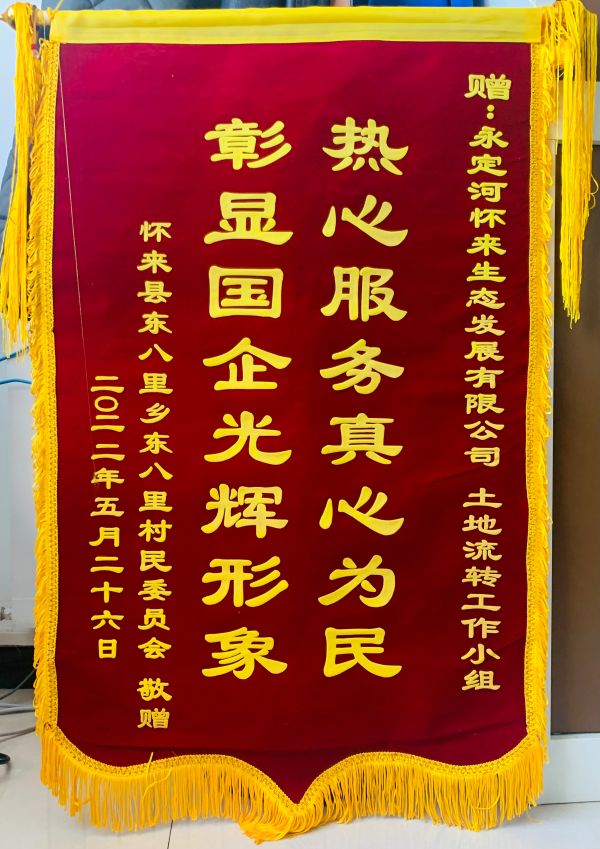 赠:永定河怀来生态发展有限公司 土地流转工作小组
热心服务真心为民
彰显国企光辉形象
怀来县东八里乡东八里村民委员会 敬赠
二〇二二年五月二十六日